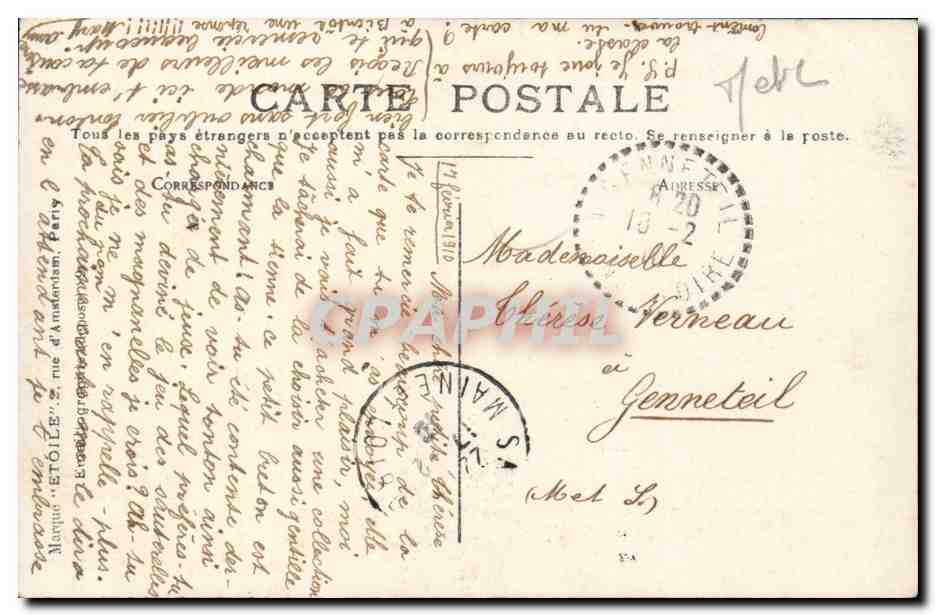 CARTE POSTALE
Tous les pays étrangers n'acceptent pas la correspondance au recto. Se renseigner à la poste.
CORRESPONDANCE
ADRESSE
Mademoiselle
Thérèse Verneau
à
Genneteil
(M et L)
GENNETEIL
20
18 -2
LOIRE
MAINE
CPAPHIL
17 février 1910 Ma chère petite Thérèse
Je te remercie beaucoup de la
carte que tu m'as envoyée, elle
m'a fait grand plaisir, moi
aussi je vais tâcher une collection
Je tâcherai de la choisir aussi gentille
que la tienne; ce petit breton est
charmant. As-tu été contente der-
nièrement de voir tonton ainsi
chargé de jeux. Lequel préfères-tu
as-tu deviné le jeu des sauterelles
et des magnanelles je crois? Ah-tu
sais je ne m'en rappelle plus.
la prochaine
le dira
en attendant je t'embrasse
bien fort sans oublier tonton
Tout le monde ici t'embrasse
Régis les meilleurs de ta cousine
qui te remercie beaucoup.
à bientôt une réponse !!!!!!! Mary
P.S. Je joue toujours à
la classe.
Comment trouves-tu ma carte?
Marque "ETOILE" 2, rue d'Amsterdam, Paris